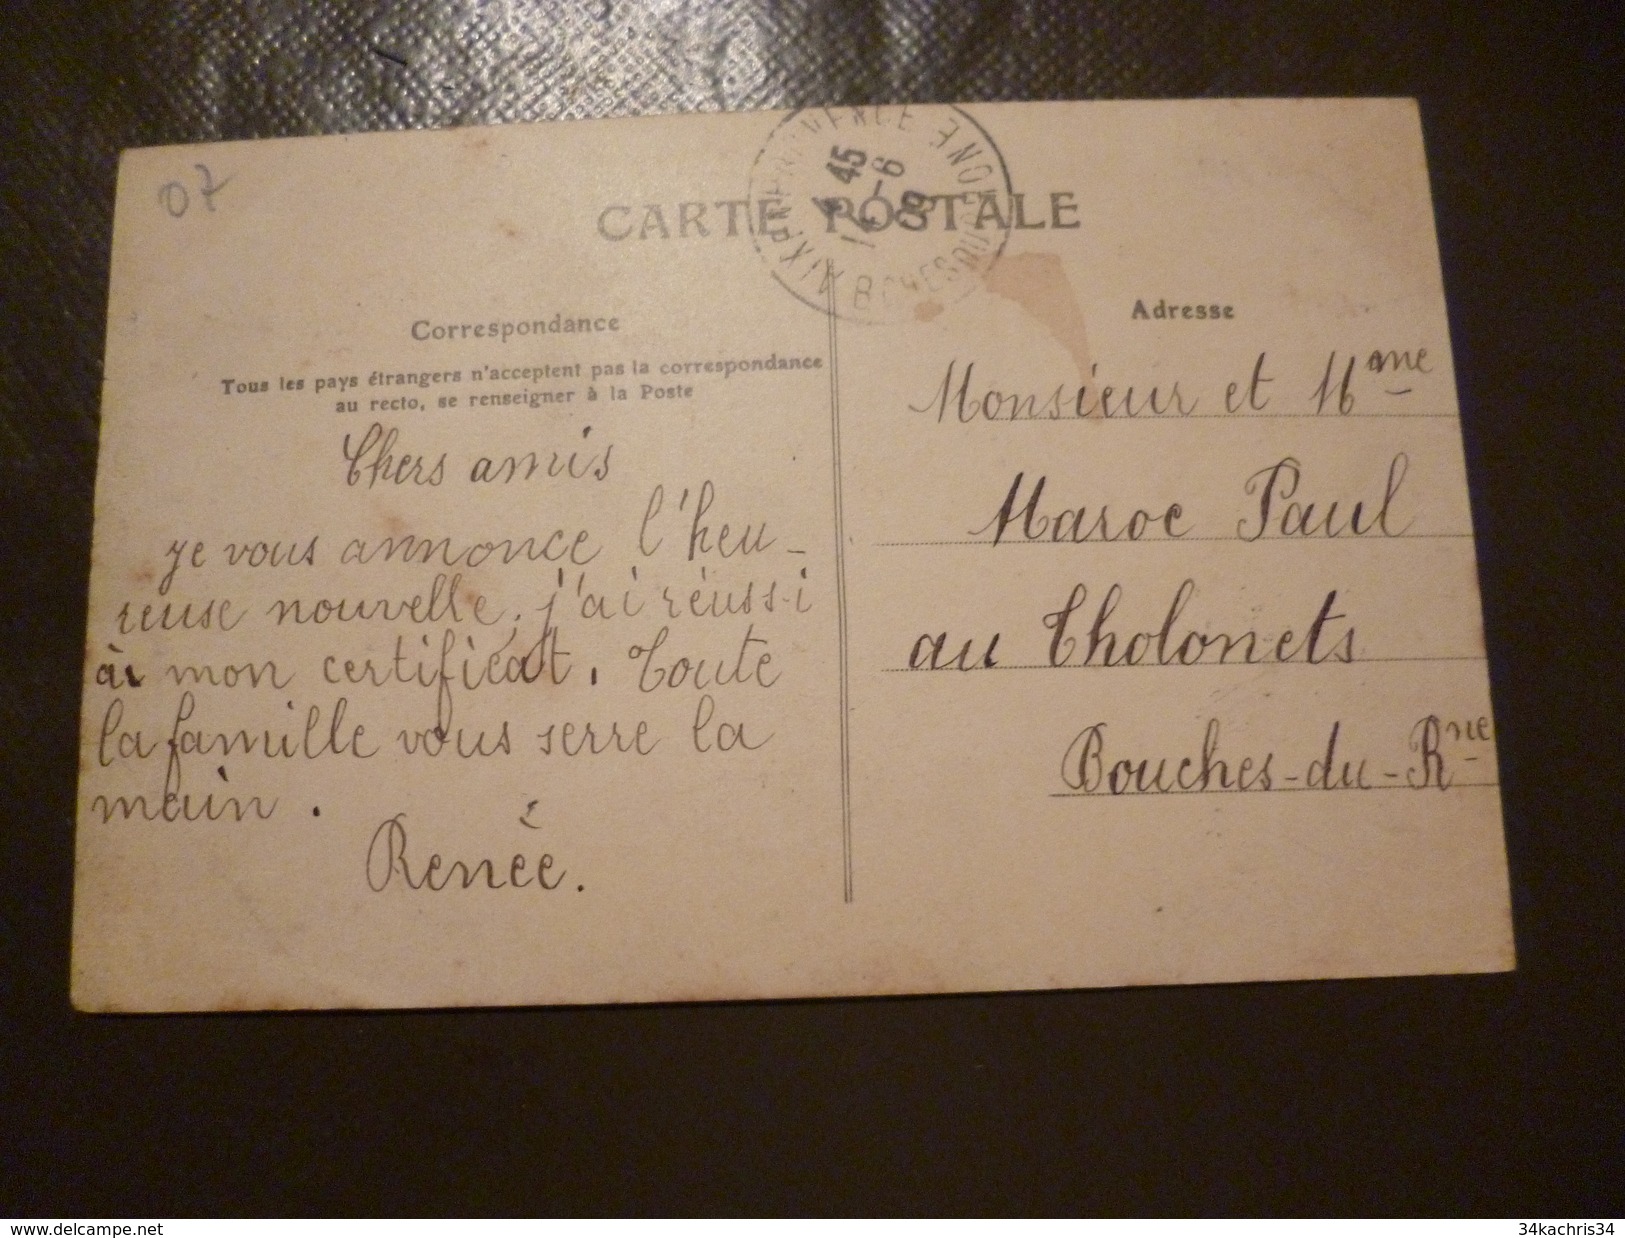 07
CARTE POSTALE
AIX EN PROVENCE
BCHES DU RHONE
45
14-6
Correspondance
Tous les pays étrangers n'acceptent pas la correspondance
au recto, se renseigner à la Poste
Chers amis
je vous annonce l'heu-
reuse nouvelle, j'ai réussi
à mon certificat. Toute
la famille vous serre la
main.
Renée.
Adresse
Monsieur et Mme
Maroc Paul
au Tholonets
Bouches-du-Rne
www.delcampe.net
34kachris34